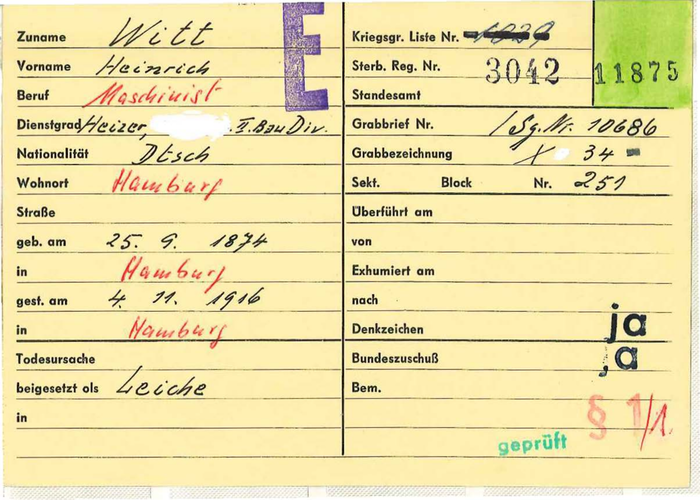 E
Zuname Witt
Vorname Heinrich
Beruf Maschinist
Dienstgrad Heizer, II. Bau Div.
Nationalität Dtsch
Wohnort Hamburg
Straße
geb. am 25. 9. 1874
in Hamburg
gest. am 4. 11. 1916
in Hamburg
Todesursache
beigesetzt als Leiche
in
Kriegsgr. Liste Nr.
Sterb. Reg. Nr. 3042 11875
Standesamt
Grabbrief Nr. / Sg. Nr. 10686
Grabbezeichnung X 34
Sekt. Block Nr. 251
Überführt am
von
Exhumiert am
nach
Denkzeichen ja
Bundeszuschuß ja
Bem.
§ 1/1.
geprüft